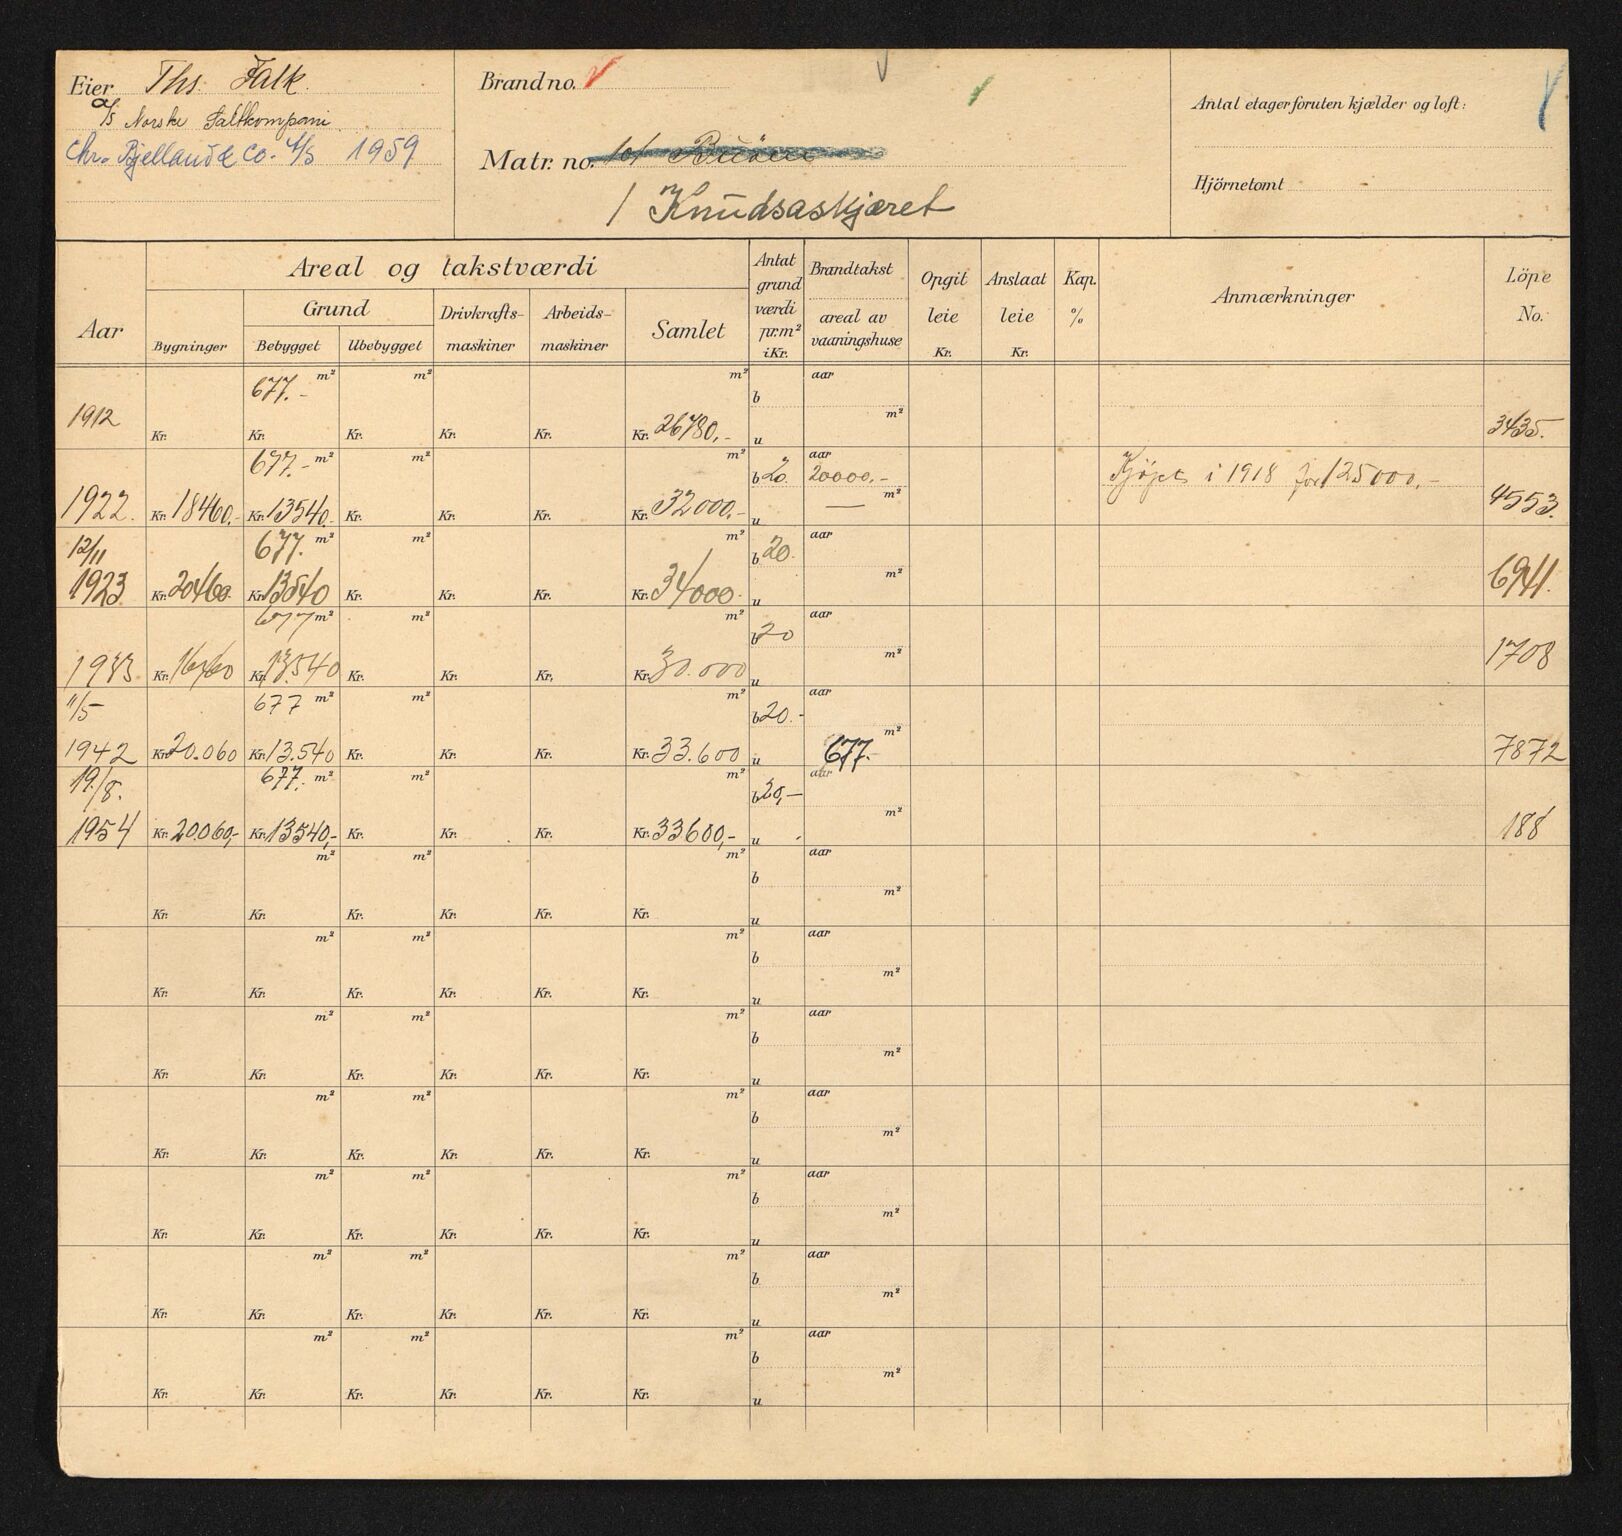 Eier Ths. Falk.
A/S Norske Saltkompani
Chr. Bjelland & Co. A/S 1959
Brandno.
Matr. no. 101
1 Knudsaskjæret
Antal etager foruten kjælder og loft:
Hjörnetomt
Aar
Areal og takstværdi
Grund
Bygninger
Bebygget
Ubebygget
Drivkrafts-
maskiner
Arbeids-
maskiner
Samlet
Antat
grund
værdi
pr.m²
i Kr.
Brandtakst
areal av
vaaningshuse
Opgit
leie
Kr.
Anslaat
leie
Kr.
Kap.
%
Anmærkninger
Löpe
No.
677.- m² m² m² b aar
1912 Kr. Kr. Kr. Kr. Kr. Kr. 26780,- u m² 3435.
677.- m² m² m² b 20. aar 20000.- Kjøpt i 1918 for 125000,-
1922. Kr. 18460.- Kr. 13540.- Kr. Kr. Kr. Kr. 32000.- u m² — 4553.
12/11 677. m² m² m² b 20. aar
1923 Kr. 20460. Kr. 13540 Kr. Kr. Kr. Kr. 34000. u m² 6941.
677 m² m² m² b 20 aar
1933 Kr. 16460 Kr. 13.540 Kr. Kr. Kr. Kr. 30.000 u m² 1708
11/5 677 m² m² m² b 20.- aar
1942 Kr. 20.060 Kr. 13.540 Kr. Kr. Kr. Kr. 33.600 u m² 677.- 7872
19/8. 677. m² m² m² b 20,- aar
1954 Kr. 20.060,- Kr. 13540,- Kr. Kr. Kr. Kr. 33.600,- u m² 188
m² m² m² b aar
Kr. Kr. Kr. Kr. Kr. Kr. u m²
m² m² m² b aar
Kr. Kr. Kr. Kr. Kr. Kr. u m²
m² m² m² b aar
Kr. Kr. Kr. Kr. Kr. Kr. u m²
m² m² m² b aar
Kr. Kr. Kr. Kr. Kr. Kr. u m²
m² m² m² b aar
Kr. Kr. Kr. Kr. Kr. Kr. u m²
m² m² m² b aar
Kr. Kr. Kr. Kr. Kr. Kr. u m²
m² m² m² b aar
Kr. Kr. Kr. Kr. Kr. Kr. u m²